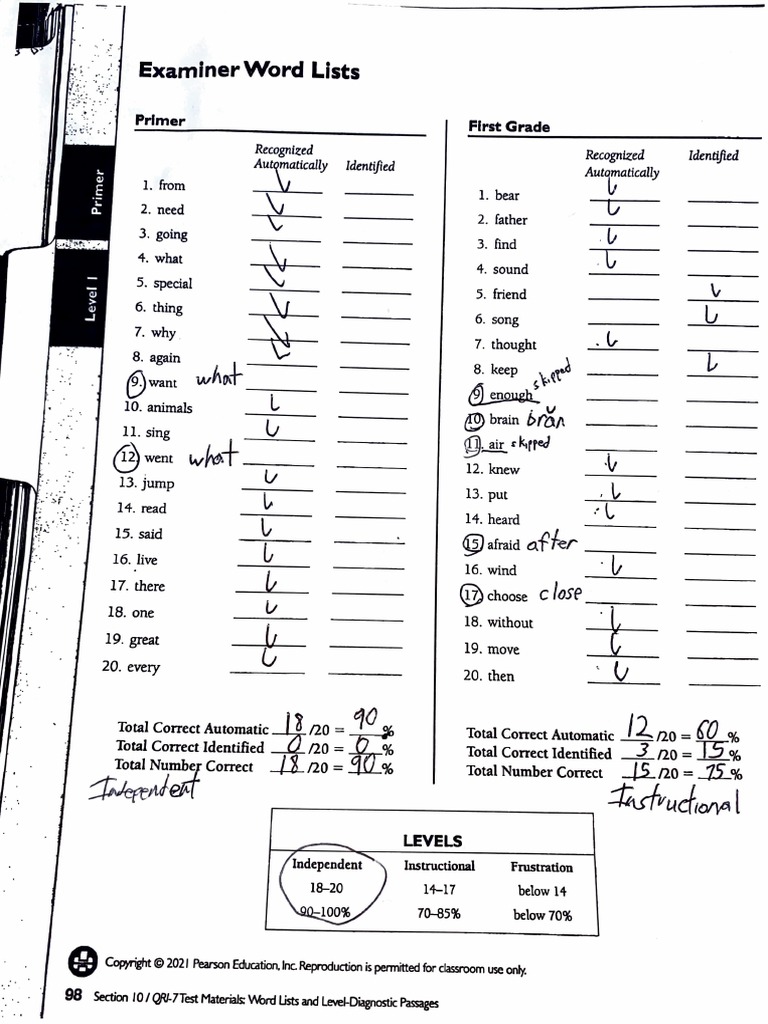 Examiner Word Lists
Primer
Recognized
Automatically Identified
1. from
2. need
3. going
4. what
5. special
6. thing
7. why
8. again
9. want what
10. animals
11. sing
12. went what
13. jump
14. read
15. said
16. live
17. there
18. one
19. great
20. every
Total Correct Automatic 18 /20 = 90 %
Total Correct Identified 0 /20 = 0 %
Total Number Correct 18 /20 = 90 %
Independent
First Grade
Recognized Identified
Automatically
1. bear
2. father
3. find
4. sound
5. friend
6. song
7. thought
8. keep
9. enough skipped
10. brain brăn
11. air skipped
12. knew
13. put
14. heard
15. afraid after
16. wind
17. choose close
18. without
19. move
20. then
Total Correct Automatic 12 /20 = 60 %
Total Correct Identified 3 /20 = 15 %
Total Number Correct 15 /20 = 75 %
Instructional
LEVELS
Independent Instructional Frustration
18–20 14–17 below 14
90–100% 70–85% below 70%
Primer
Level 1
Copyright © 2021 Pearson Education, Inc. Reproduction is permitted for classroom use only.
98 Section 10 / QRI-7 Test Materials: Word Lists and Level-Diagnostic Passages